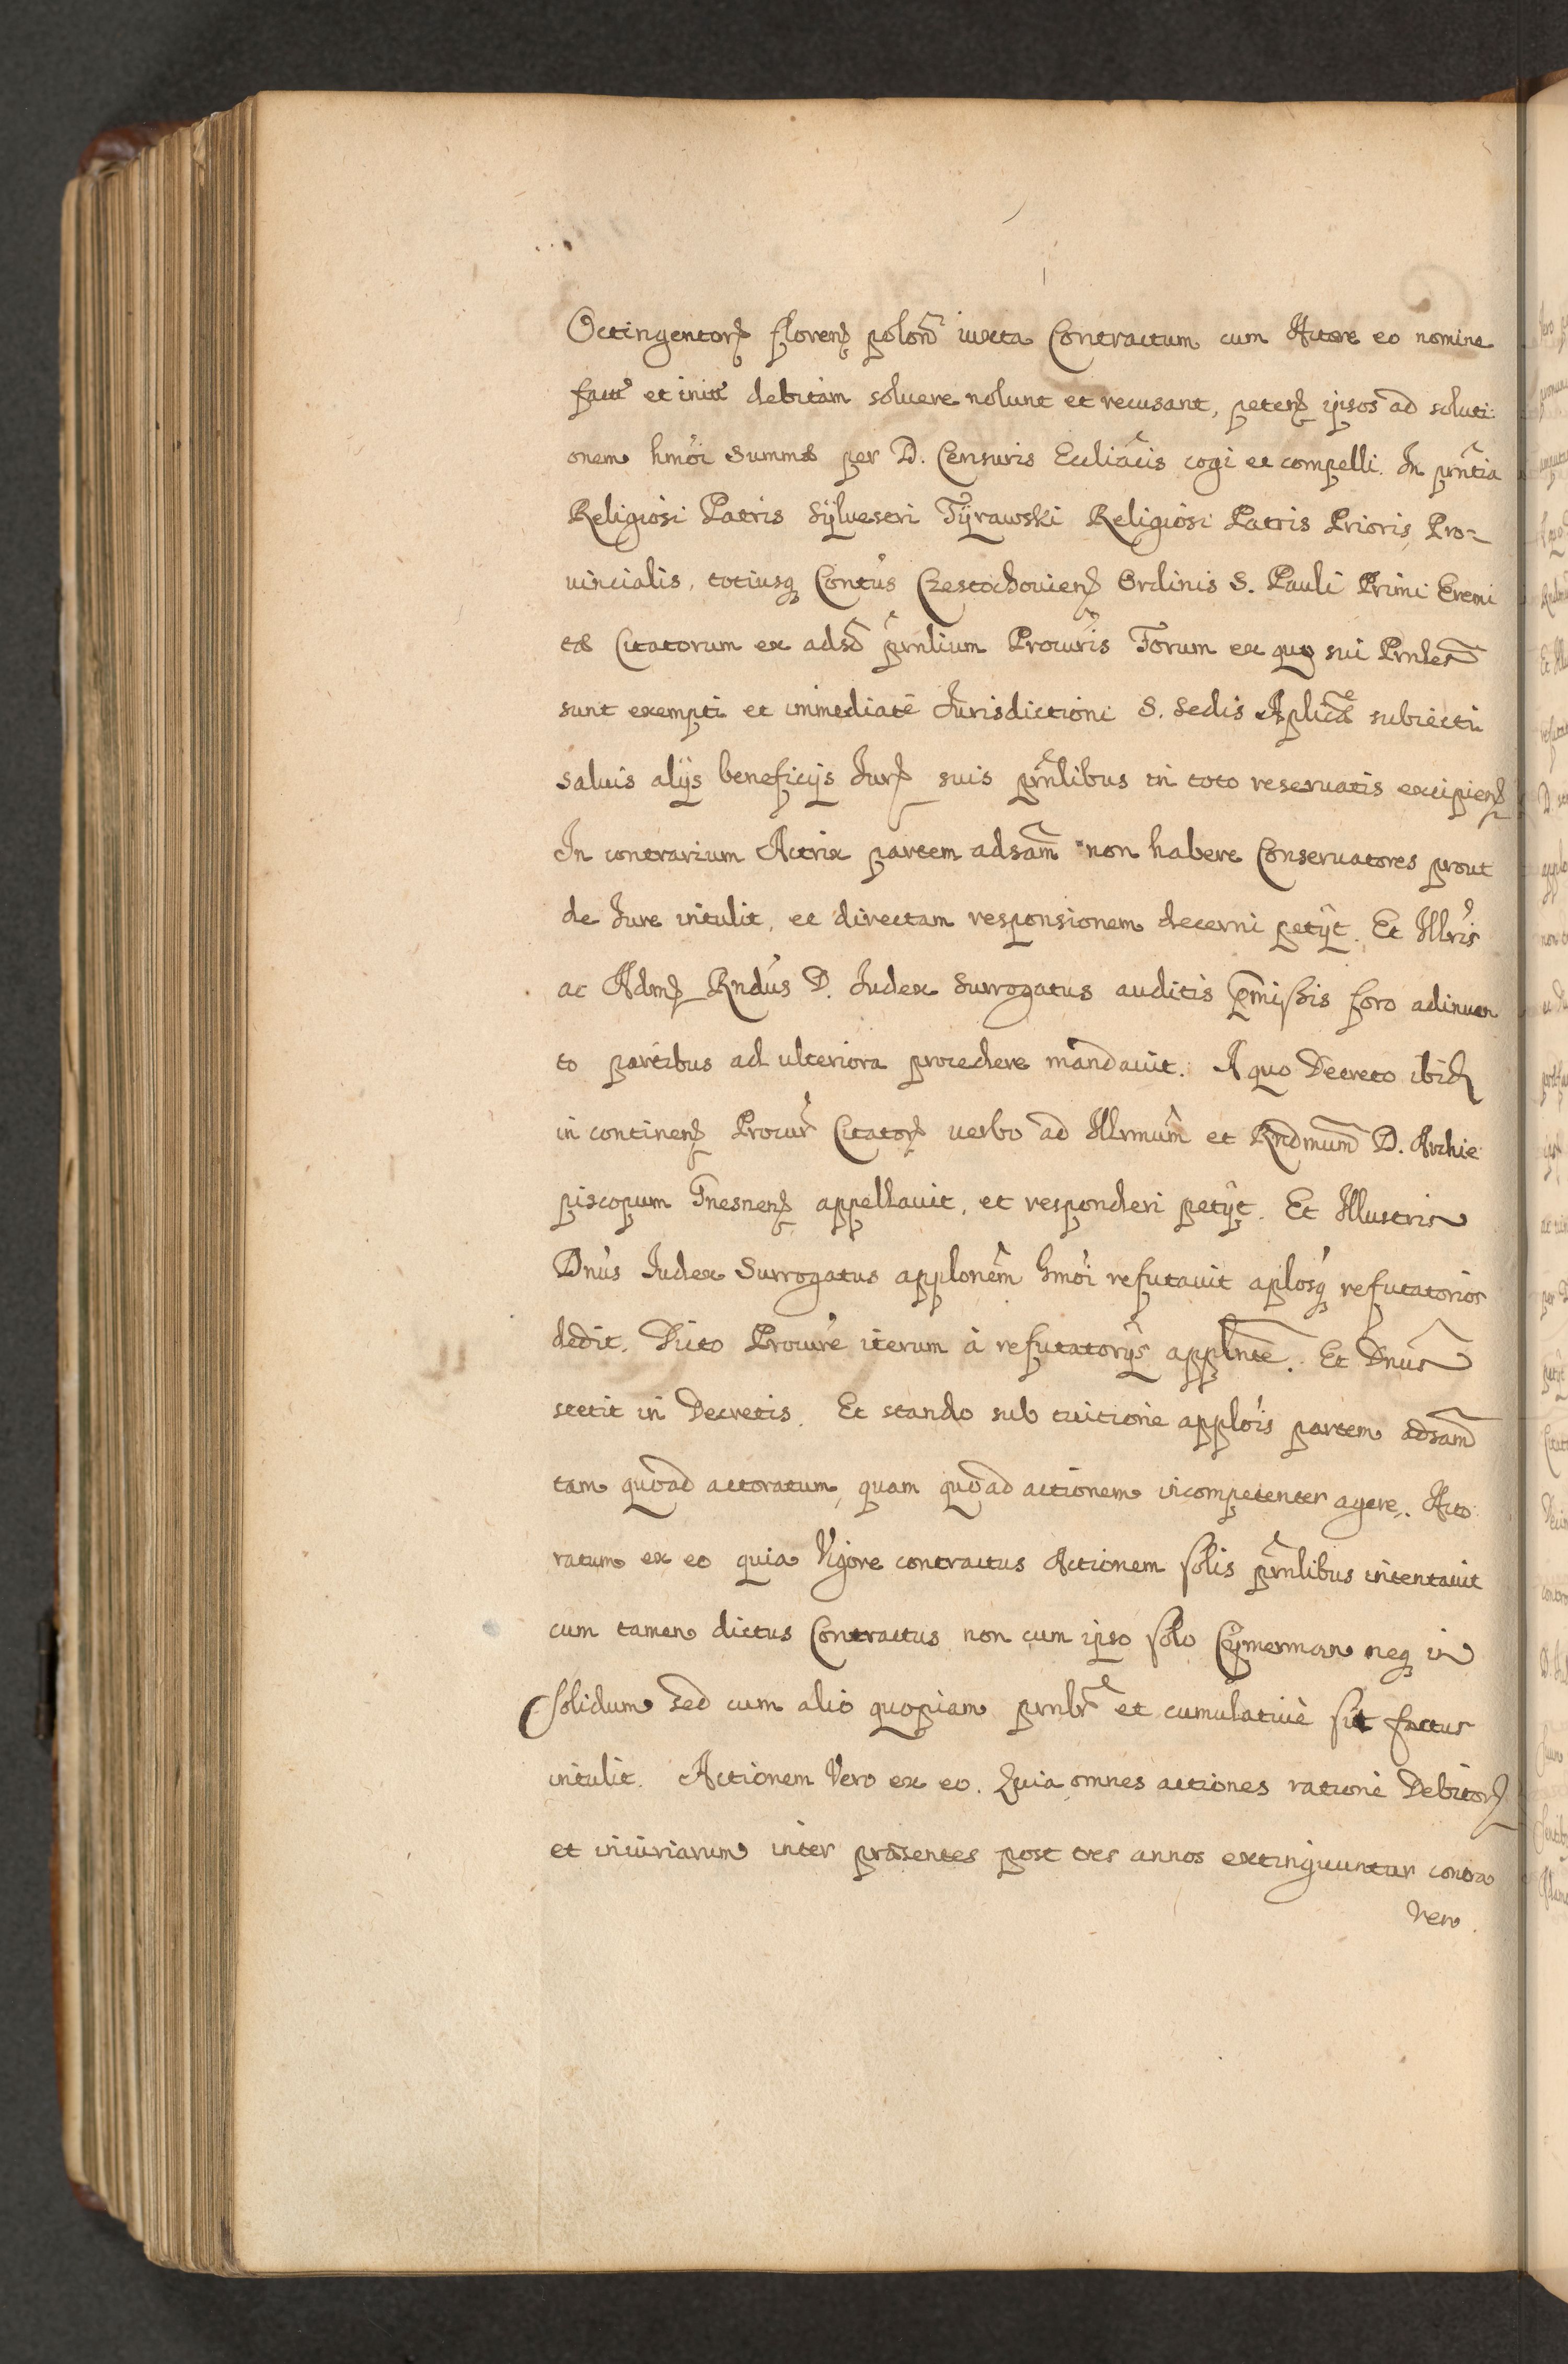 Octingentorꝫ florenꝫ polon̄ iuxta Contractum cum Actore eo nomine
factu et initu debitam soluere nolunt et recusant, petenꝫ ipsos ad soluti
onem hmo̅i Summæ per D. Censuris Eccliãcis cogi et compelli. In prn̄tia
Religiosi Patris Sÿluestri Tÿrawski Religiosi Patris Prioris, Pro=
uincialis, totiusqꝫ Cont̕us Czestochouienꝫ Ordinis S. Pauli Primi Eremi
tæ Citatorum ex adsõ prn̄lium Procur̃is Forum ex quo sui Prnles
sunt exempti et immediatè Jurisdictioni S. Sedis Aplicæ subiecti
saluis alijs beneficijs Jurꝫ suis prn̄libus in toto reseruatis excipienꝫ
In contrarium Actrix partem adsam̄ non habere Conseruatores prout
de Jure intulit, et directam responsionem decerni petijt. Et Illr̕is
ac Admꝫ Rnd̕us D. Judex Surrogatus auditis p̄missis foro adinuen
to partibus ad ulteriora procedere mandauit. A quo Decreto ibid̨
in continenꝫ Procur̃ Citatorꝫ uerbo ad Illrmum̃ et Rndmum̃ D. Archie
piscopum Gnesnenꝫ appellauit, et responderi petijt. Et Illustris
Dnus Judex Surrogatus applonem̃ hmo̅i refutauit aplosqꝫ refutatorios
dedit. Dicto Procur̃e iterum à refutatorijs applnte. Et Dnus
stetit in Decretis. Et stando sub tuitione applo̅is partem adsam̃
tam quoad actoratum, quam quoad actionem incompetenter agere. Acto
ratum ex eo quia Vigore contractus Actionem solis prn̄libus intentauit
cum tamen dictus Contractus non cum ipso solo neqꝫ in
solidum sed cum alio quopiam et cumulatiuè sit factus
intulit. Actionem Vero ex eo. Quia omnes actiones ratione Debitorꝫ
et iniuriarum inter præsentes post tres annos extinguuntur contra
Vero